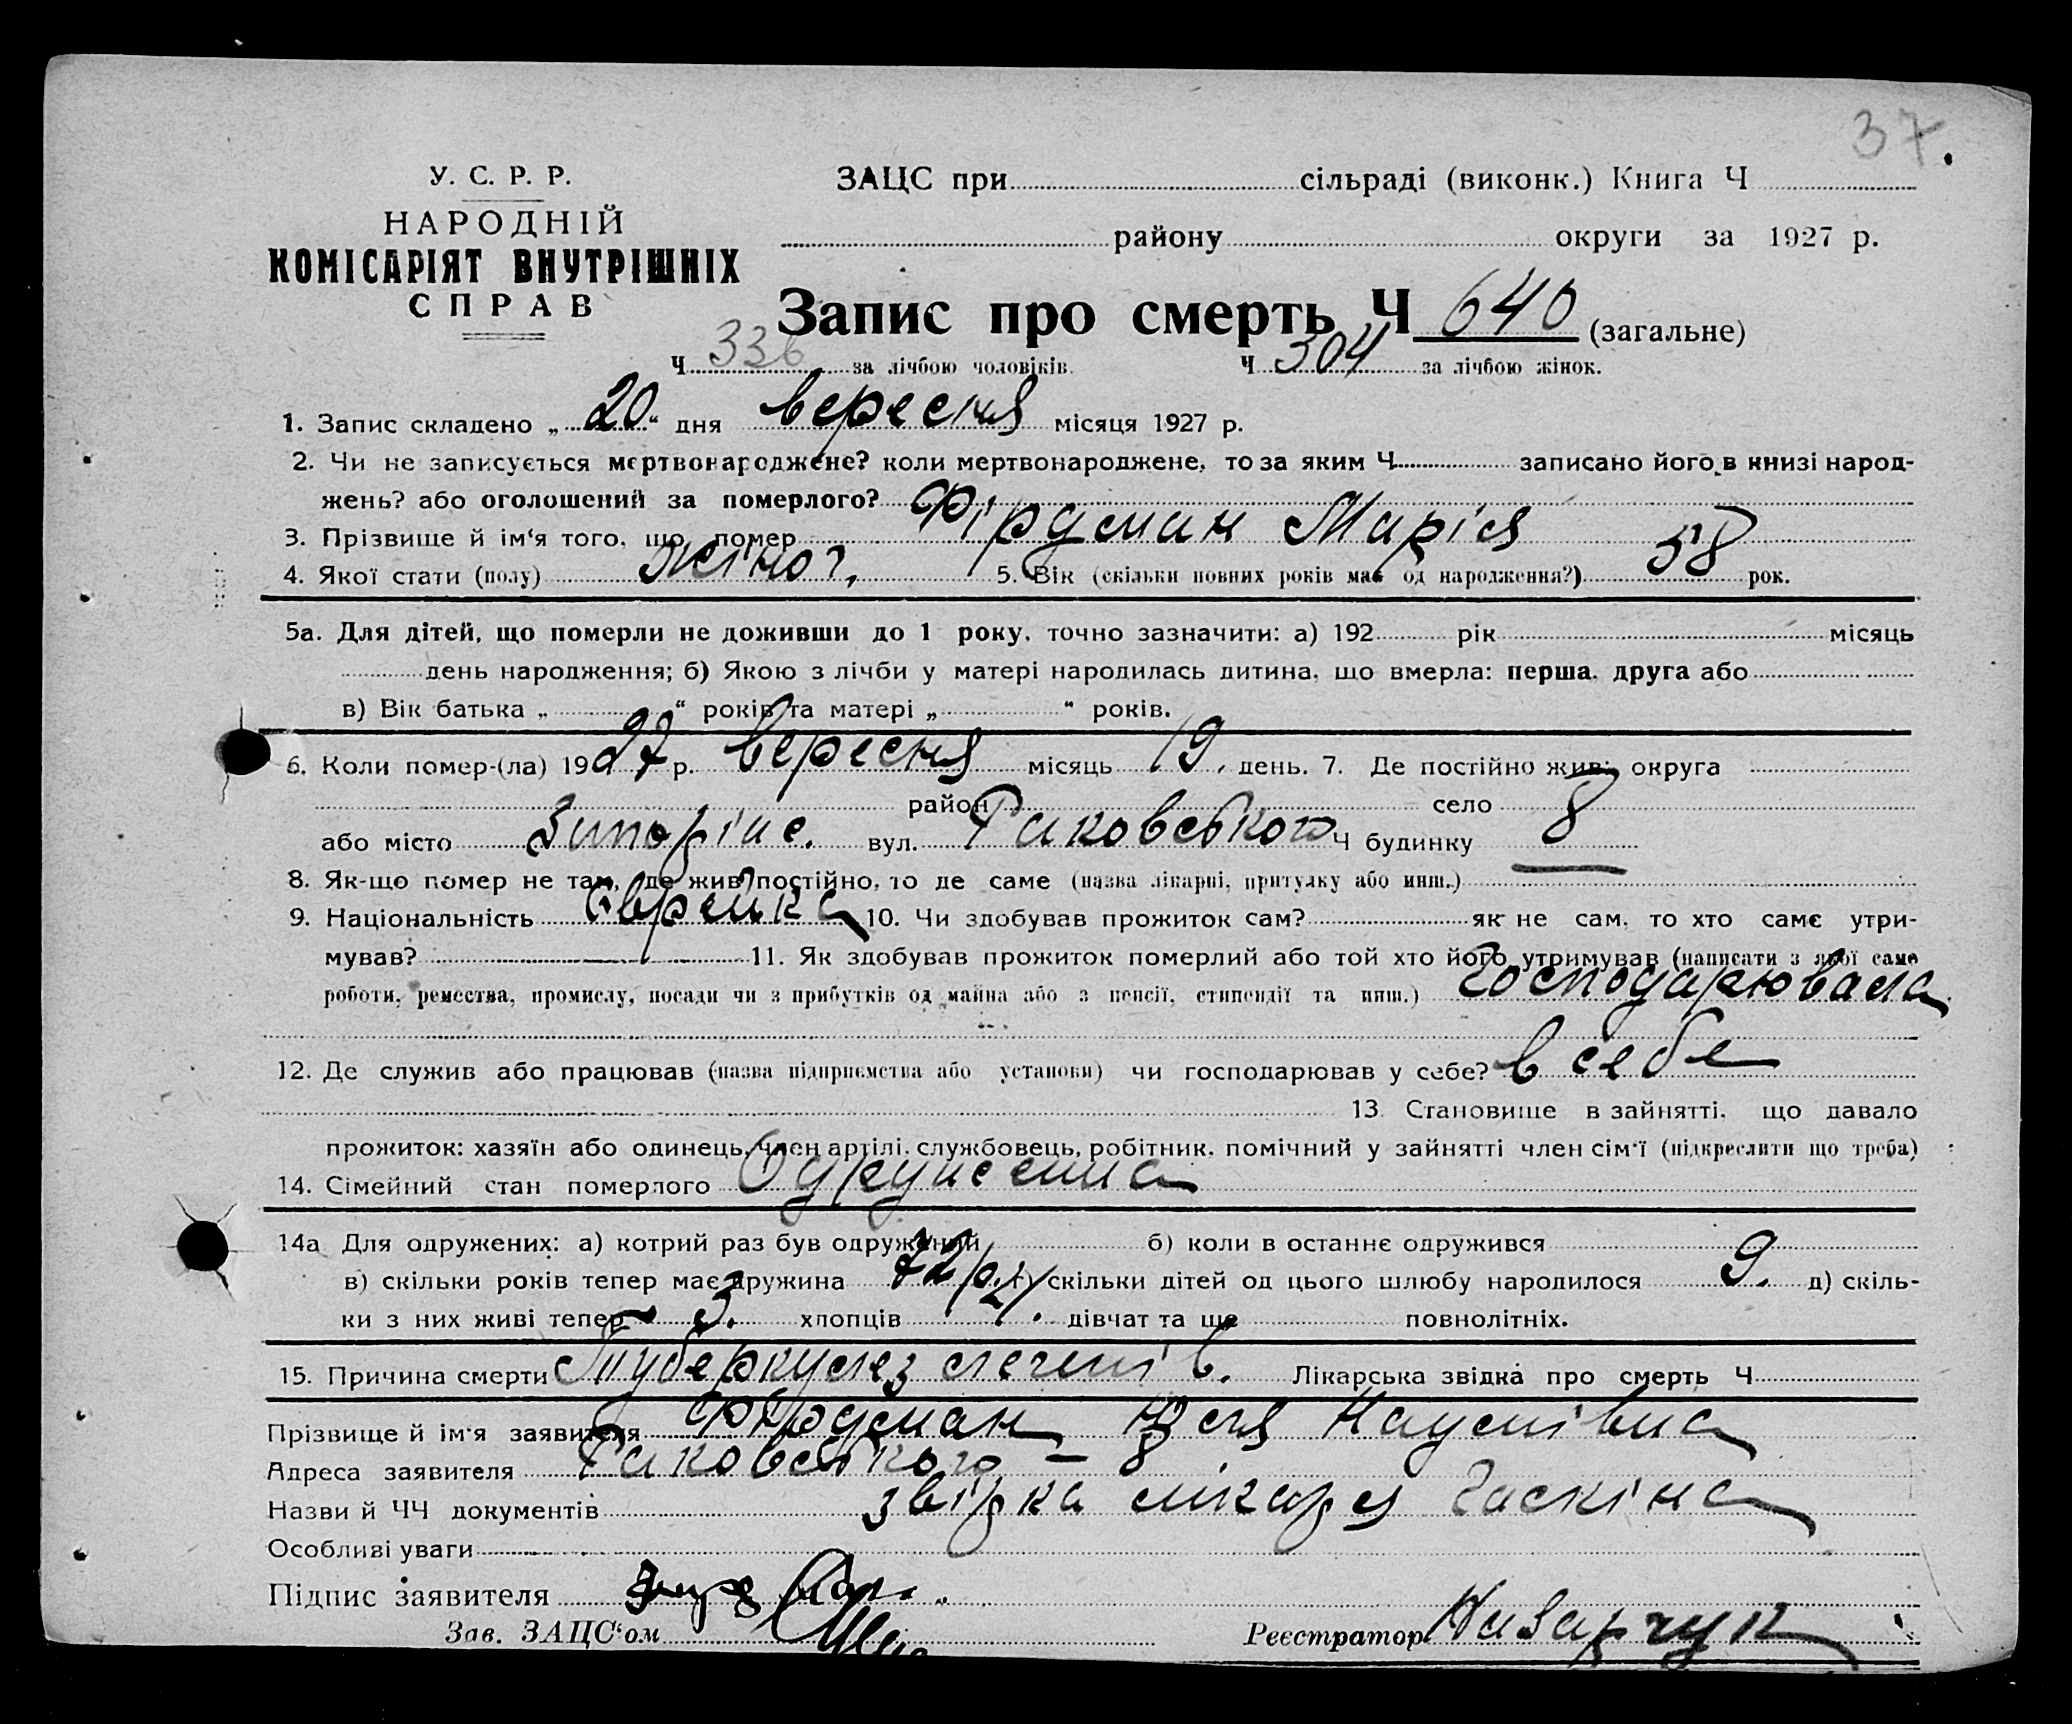 37.
У. С. Р. Р.
НАРОДНІЙ
КОМІСАРІЯТ ВНУТРІШНІХ
СПРАВ
ЗАЦС при сільраді (виконк.) Книга Ч
району округи за 1927 р.
Запис про смерть Ч 640 (загальне)
Ч 336 за лічбою чоловіків. Ч 304 за лічбою жінок.
1. Запис складено „20“ дня вересня місяця 1927 р.
2. Чи не записується мертвонароджене? коли мертвонароджене, то за яким Ч записано його в книзі народ-
жень? або оголошений за померлого?
3. Прізвище й ім‘я того, що помер Фірдман Марія
4. Якої стати (полу) жіноч. 5. Вік (скільки повних років має од народження?) 58 рок.
5а. Для дітей, що померли не доживши до 1 року, точно зазначити: а) 192 рік місяць
день народження; б) Якою з лічби у матері народилась дитина, що вмерла: перша, друга або
в) Вік батька „ “ років та матері „ “ років.
6. Коли помер-(ла) 1927 р. вересня місяць 19. день. 7. Де постійно жив: округа
район село
або місто Запоріже. вул. Раковського Ч будинку 8
8. Як-що помер не там, де жив постійно, то де саме (назва лікарні, притулку або инш.)
9. Національність Єврейка 10. Чи здобував прожиток сам? як не сам, то хто саме утри-
мував? 11. Як здобував прожиток померлий або той хто його утримував (написати з якої саме
роботи, ремества, промислу, посади чи з прибутків од майна або з пенсії, стипендії та инш.) Господарювала
12. Де служив або працював (назва підприємства або установи) чи господарював у себе? в себе
13. Становище в зайнятті, що давало
прожиток: хазяїн або одинець, член артілі, службовець, робітник, помічний у зайнятті член сім‘ї (підкреслити що треба)
14. Сімейний стан померлого Одружена
14а Для одружених: а) котрий раз був одружений б) коли в останнє одружився
в) скільки років тепер має дружина 72 р. г) скільки дітей од цього шлюбу народилося 9. д) скіль-
ки з них живі тепер 3. хлопців 4. дівчат та ще повнолітніх.
15. Причина смерти Туберкульоз легенів. Лікарська звідка про смерть Ч
Прізвище й ім‘я заявителя Фірдман Наумівна
Адреса заявителя Раковського – 8
Назви й ЧЧ документів звідка лікаря Гаскіна
Особливі уваги
Підпис заявителя
Зав. ЗАЦС‘ом
Реєстратор